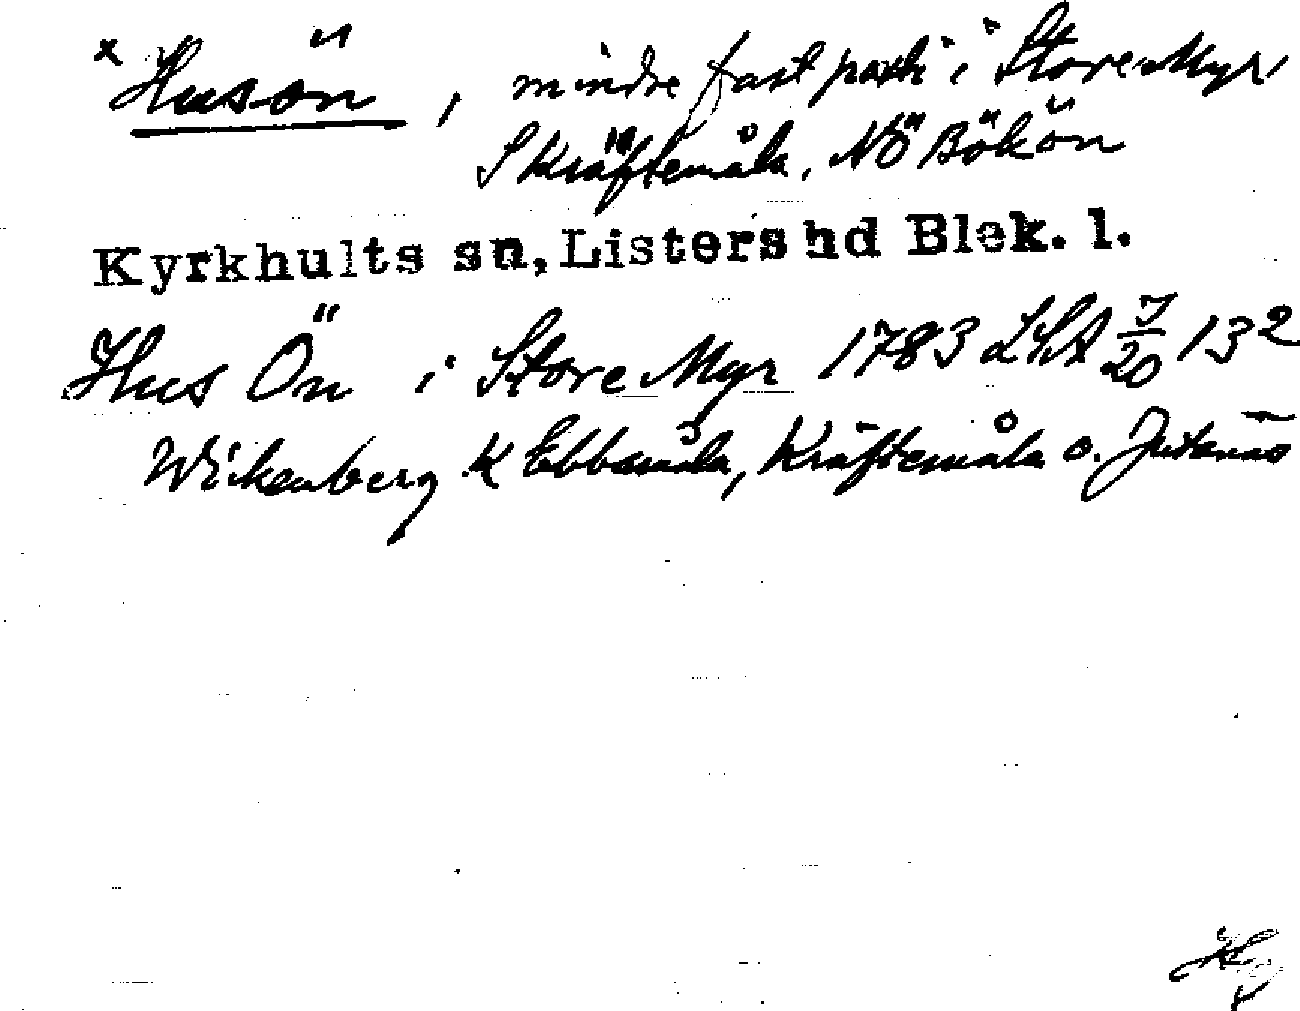 x Husön, mindre fast parti i Store Myr,
S Kräftemåla, NÖ Bökön
Kyrkhults sn, Listers hd Blek. l.
Hus Ön i Store Myr 1783 LSA J/20 13²
Wickenberg K Ebbamåla, Kräftemåla o.